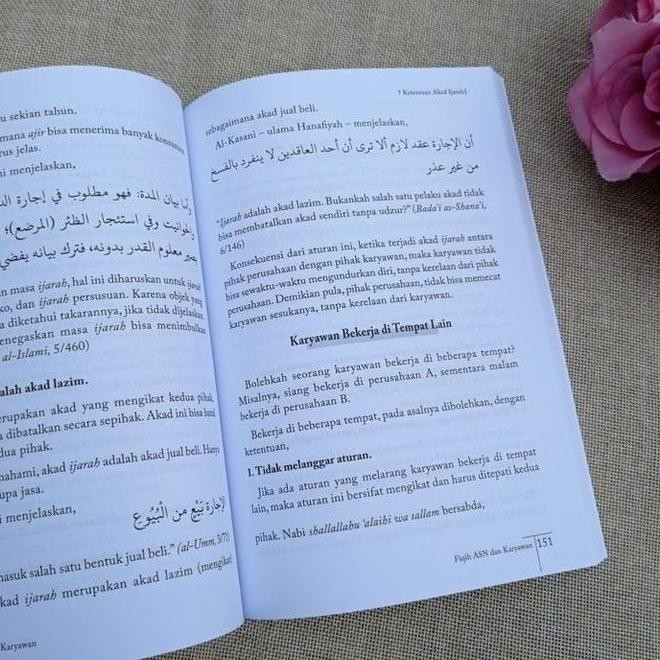 u sekian tahun.
mana ajir bisa menerima banyak konsumen
rus jelas.
ni menjelaskan,
بيان المدة: فهو مطلوب في إجارة
وفي استئجار الظئر (المرضع)؛
معلوم القدر بدونه، فترك بيانه يفضي
n masa ijarah, hal ini diharuskan untuk ijarah
ko, dan ijarah persusuan. Karena objek yang
a diketahui takarannya, jika tidak dijelaskan,
enegaskan masa ijarah bisa menimbulkan
al-Islami, 5/460)
alah akad lazim.
erupakan akad yang mengikat kedua pihak,
a dibatalkan secara sepihak. Akad ini bisa batal
dua pihak.
ahami, akad ijarah adalah akad jual beli. Hanya
upa jasa.
i menjelaskan,
الإجارة بَيْع من الْبُيُوع
masuk salah satu bentuk jual beli." (al-Umm, 3/
kad ijarah merupakan akad lazim (mengikat)
Karyawan
7 Ketentuan Akad Ijarah]
sebagaimana akad jual beli.
Al-Kasani – ulama Hanafiyah – menjelaskan,
أن الإجارة عقد لازم ألا ترى أن أحد العاقدين لا ينفرد بالفسخ
من غير عذر
"Ijarah adalah akad lazim. Bukankah salah satu pelaku akad tidak
bisa membatalkan akad sendiri tanpa udzur?" (Bada'i as-Shana'i,
6/146)
Konsekuensi dari aturan ini, ketika terjadi akad ijarah antara
pihak perusahaan dengan pihak karyawan, maka karyawan tidak
bisa sewaktu-waktu mengundurkan diri, tanpa kerelaan dari pihak
perusahaan. Demikian pula, pihak perusahaan, tidak bisa memecat
karyawan sesukanya, tanpa kerelaan dari karyawan.
Karyawan Bekerja di Tempat Lain
Bolehkah seorang karyawan bekerja di beberapa tempat?
Misalnya, siang bekerja di perusahaan A, sementara malam
bekerja di perusahaan B.
Bekerja di beberapa tempat, pada asalnya dibolehkan, dengan
ketentuan,
1. Tidak melanggar aturan.
Jika ada aturan yang melarang karyawan bekerja di tempat
lain, maka aturan ini bersifat mengikat dan harus ditepati kedua
pihak. Nabi shallallahu 'alaihi wa sallam bersabda,
Fiqih ASN dan Karyawan 151